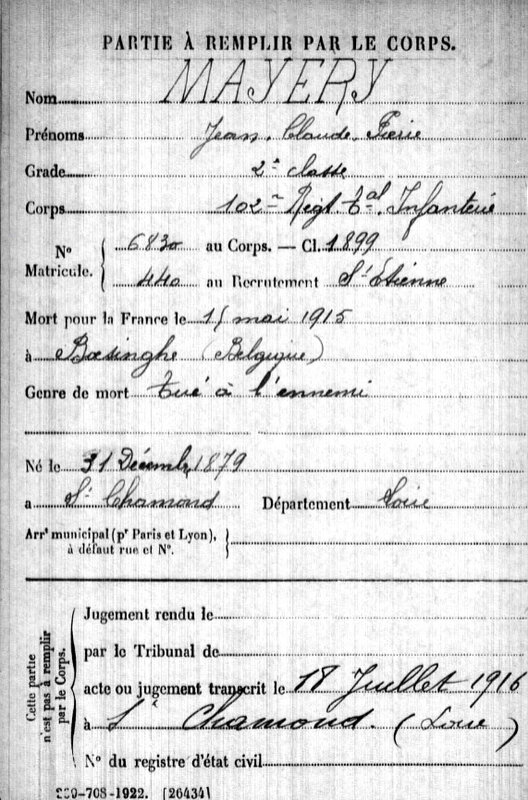 PARTIE À REMPLIR PAR LE CORPS.
Nom MAYERY
Prénoms Jean, Claude, Pierre
Grade 2e classe
Corps 102me Regt tal Infanterie
No Matricule. 6830 au Corps. — Cl. 1899
440 au Recrutement St Etienne
Mort pour la France le 15 mai 1915
à Bœsinghe (Belgique)
Genre de mort tué à l'ennemi
Né le 31 Décembre 1879
a St Chamond Département Loire
Arrt municipal (pr Paris et Lyon),
à défaut rue et No.
Cette partie n'est pas à remplir par le Corps.
Jugement rendu le
par le Tribunal de
acte ou jugement transcrit le 18 Juillet 1916
à St Chamond. (Loire)
No du registre d'état civil
-708-1922. [26434]